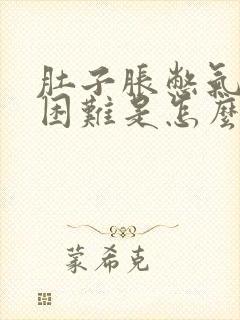 肚子脹憋氣
困難是怎麼
蒙希克